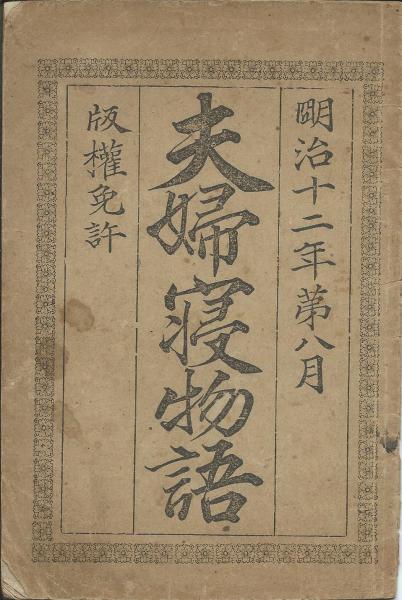 明治十二年第八月
夫婦寝物語
版權免許